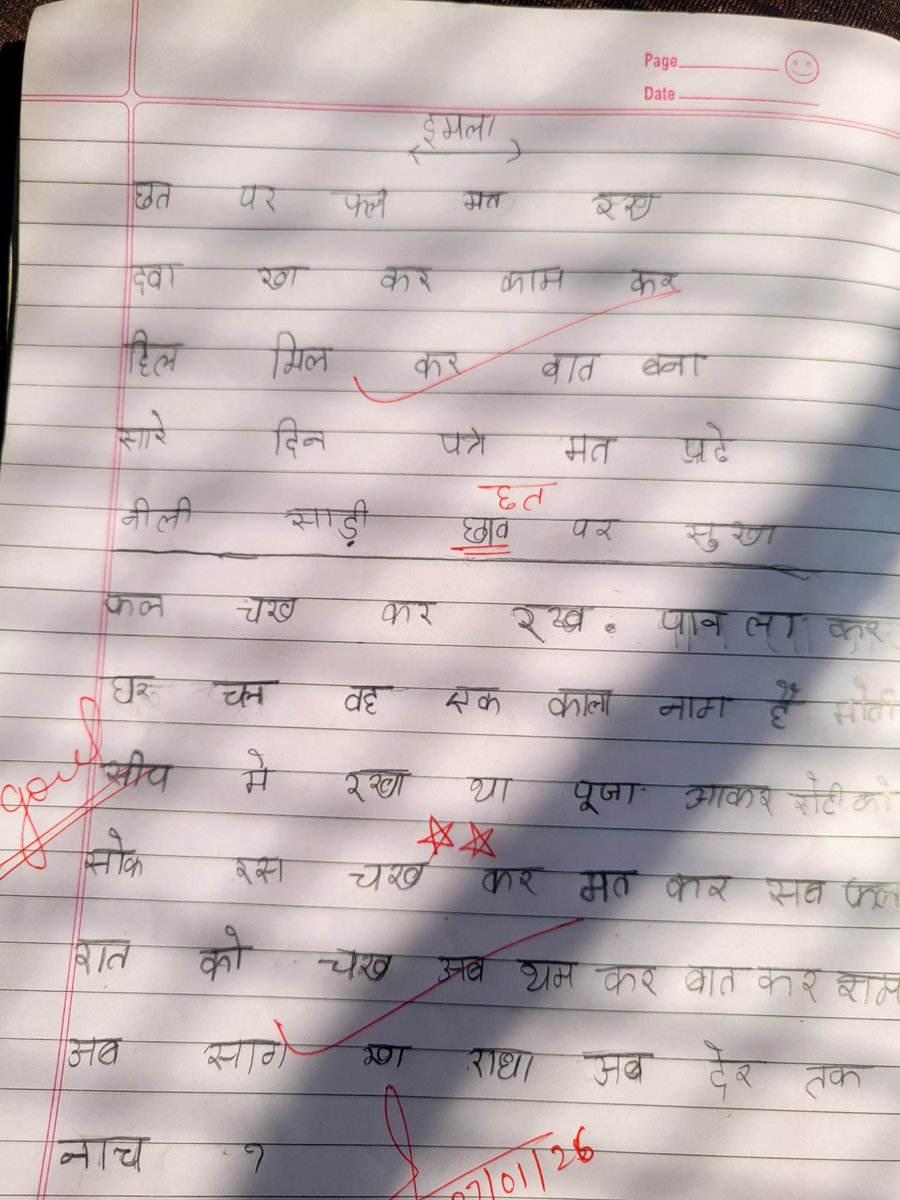 Page
Date
इमला
छत पर फल मत रख
दवा खा कर काम कर
हिल मिल कर बात बना
सारे दिन पत्ते मत पढे
छत
नीली साड़ी छाव पर सुखा
फल चख कर रख. पान ला कर
घर चल वह एक काला नाग है मोती
सीप मे रखा था पूजा आकर रोटी को
सोक रस चख कर मत कर सब फल
good
रात को चख अब थम कर बात कर राम
अब साग खा राधा अब देर तक
नाच १
07/01/26